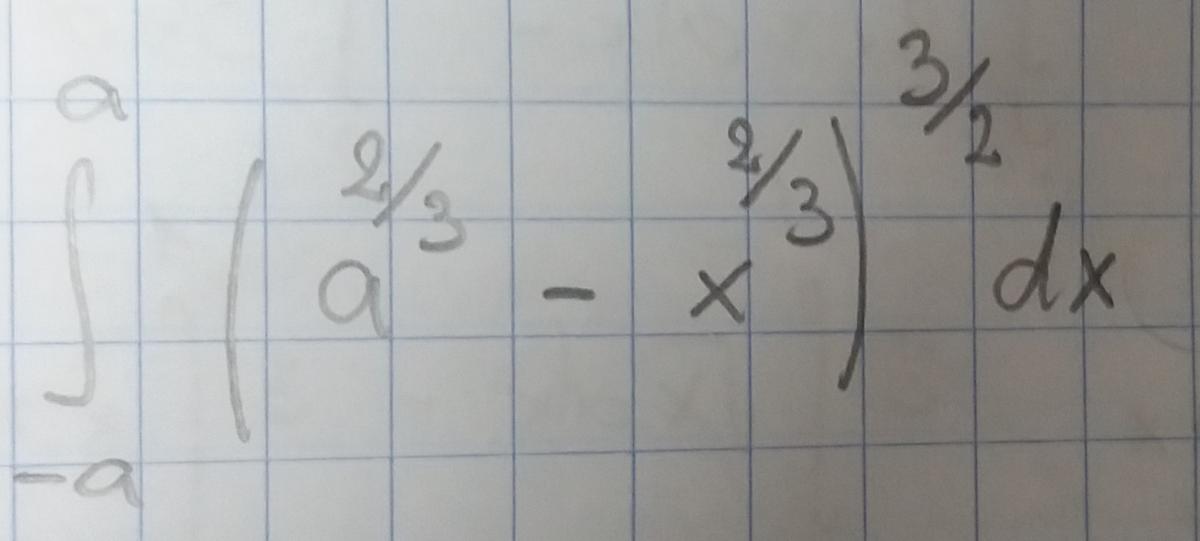 ∫_{-a}^{a} (a^{2/3} - x^{2/3})^{3/2} dx